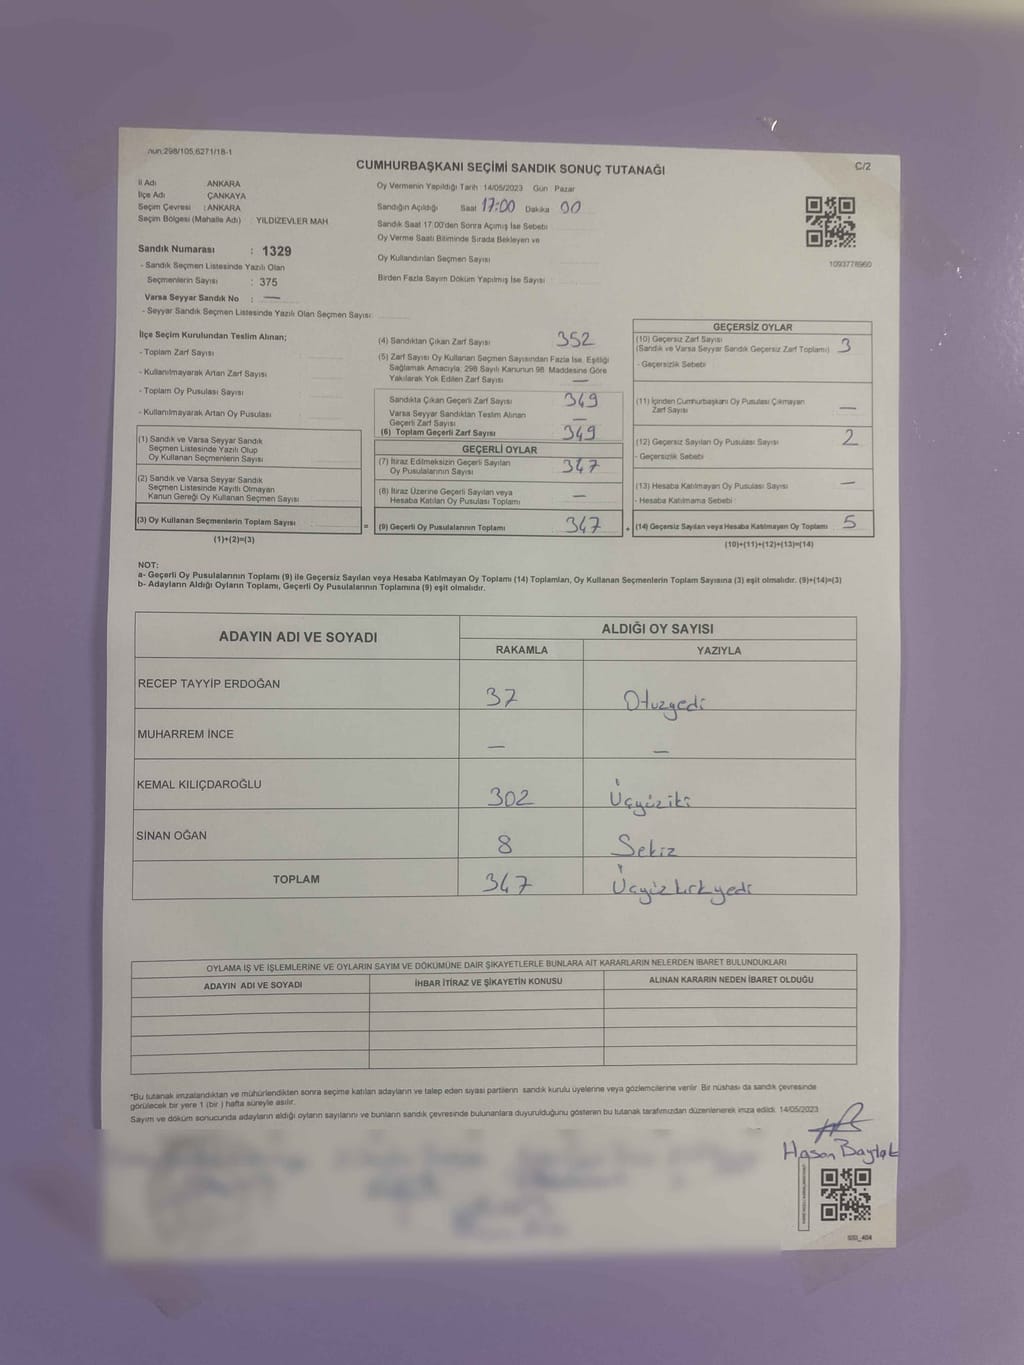 nun:298/105,6271/18-1
CUMHURBAŞKANI SEÇİMİ SANDIK SONUÇ TUTANAĞI
C/2
İl Adı : ANKARA
İlçe Adı : ÇANKAYA
Seçim Çevresi : ANKARA
Seçim Bölgesi (Mahalle Adı) : YILDIZEVLER MAH
Sandık Numarası : 1329
- Sandık Seçmen Listesinde Yazılı Olan
Seçmenlerin Sayısı : 375
Varsa Seyyar Sandık No : —
- Seyyar Sandık Seçmen Listesinde Yazılı Olan Seçmen Sayısı:
Oy Vermenin Yapıldığı Tarih 14/05/2023 Gün Pazar
Sandığın Açıldığı Saat 17:00 Dakika 00
Sandık Saat 17:00'den Sonra Açımış İse Sebebi
Oy Verme Saati Bitiminde Sırada Bekleyen ve
Oy Kullandırılan Seçmen Sayısı
Birden Fazla Sayım Döküm Yapılmış İse Sayısı
1093778960
İlçe Seçim Kurulundan Teslim Alınan;
- Toplam Zarf Sayısı
- Kullanılmayarak Artan Zarf Sayısı
- Toplam Oy Pusulası Sayısı
- Kullanılmayarak Artan Oy Pusulası
(1) Sandık ve Varsa Seyyar Sandık
Seçmen Listesinde Yazılı Olup
Oy Kullanan Seçmenlerin Sayısı
(2) Sandık ve Varsa Seyyar Sandık
Seçmen Listesinde Kayıtlı Olmayan
Kanun Gereği Oy Kullanan Seçmen Sayısı
(3) Oy Kullanan Seçmenlerin Toplam Sayısı
(1)+(2)=(3)
(4) Sandıktan Çıkan Zarf Sayısı 352
(5) Zarf Sayısı Oy Kullanan Seçmen Sayısından Fazla İse, Eşitliği
Sağlamak Amacıyla, 298 Sayılı Kanunun 98. Maddesine Göre
Yakılarak Yok Edilen Zarf Sayısı —
Sandıkta Çıkan Geçerli Zarf Sayısı 349
Varsa Seyyar Sandıktan Teslim Alınan
Geçerli Zarf Sayısı —
(6) Toplam Geçerli Zarf Sayısı 349
GEÇERLİ OYLAR
(7) İtiraz Edilmeksizin Geçerli Sayılan
Oy Pusulalarının Sayısı 347
(8) İtiraz Üzerine Geçerli Sayılan veya
Hesaba Katılan Oy Pusulası Toplamı —
= (9) Geçerli Oy Pusulalarının Toplamı 347 +
GEÇERSİZ OYLAR
(10) Geçersiz Zarf Sayısı
(Sandık ve Varsa Seyyar Sandık Geçersiz Zarf Toplamı) 3
- Geçersizlik Sebebi
(11) İçinden Cumhurbaşkanı Oy Pusulası Çıkmayan
Zarf Sayısı —
(12) Geçersiz Sayılan Oy Pusulası Sayısı 2
- Geçersizlik Sebebi
(13) Hesaba Katılmayan Oy Pusulası Sayısı —
- Hesaba Katılmama Sebebi
(14) Geçersiz Sayılan veya Hesaba Katılmayan Oy Toplamı 5
(10)+(11)+(12)+(13)=(14)
NOT:
a- Geçerli Oy Pusulalarının Toplamı (9) ile Geçersiz Sayılan veya Hesaba Katılmayan Oy Toplamı (14) Toplamları, Oy Kullanan Seçmenlerin Toplam Sayısına (3) eşit olmalıdır. (9)+(14)=(3)
b- Adayların Aldığı Oyların Toplamı, Geçerli Oy Pusulalarının Toplamına (9) eşit olmalıdır.
ADAYIN ADI VE SOYADI
ALDIĞI OY SAYISI
RAKAMLA YAZIYLA
RECEP TAYYİP ERDOĞAN 37 Otuzyedi
MUHARREM İNCE — —
KEMAL KILIÇDAROĞLU 302 Üçyüziki
SİNAN OĞAN 8 Sekiz
TOPLAM 347 Üçyüzkırkyedi
OYLAMA İŞ VE İŞLEMLERİNE VE OYLARIN SAYIM VE DÖKÜMÜNE DAİR ŞİKAYETLERLE BUNLARA AİT KARARLARIN NELERDEN İBARET BULUNDUKLARI
ADAYIN ADI VE SOYADI İHBAR İTİRAZ VE ŞİKAYETİN KONUSU ALINAN KARARIN NEDEN İBARET OLDUĞU
*Bu tutanak imzalandıktan ve mühürlendikten sonra seçime katılan adayların ve talep eden siyasi partilerin sandık kurulu üyelerine veya gözlemcilerine verilir. Bir nüshası da sandık çevresinde
görülecek bir yere 1 (bir ) hafta süreyle asılır.
Sayım ve döküm sonucunda adayların aldığı oyların sayılarını ve bunların sandık çevresinde bulunanlara duyurulduğunu gösteren bu tutanak tarafımızdan düzenlenerek imza edildi. 14/05/2023
Hasan
SSI_404